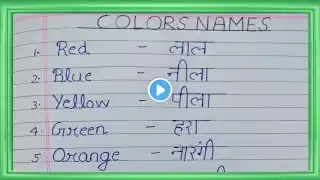 COLORS NAMES.
1. Red - लाल
2. Blue - नीला
3. Yellow - पीला
4. Green - हरा
5. Orange - नारंगी